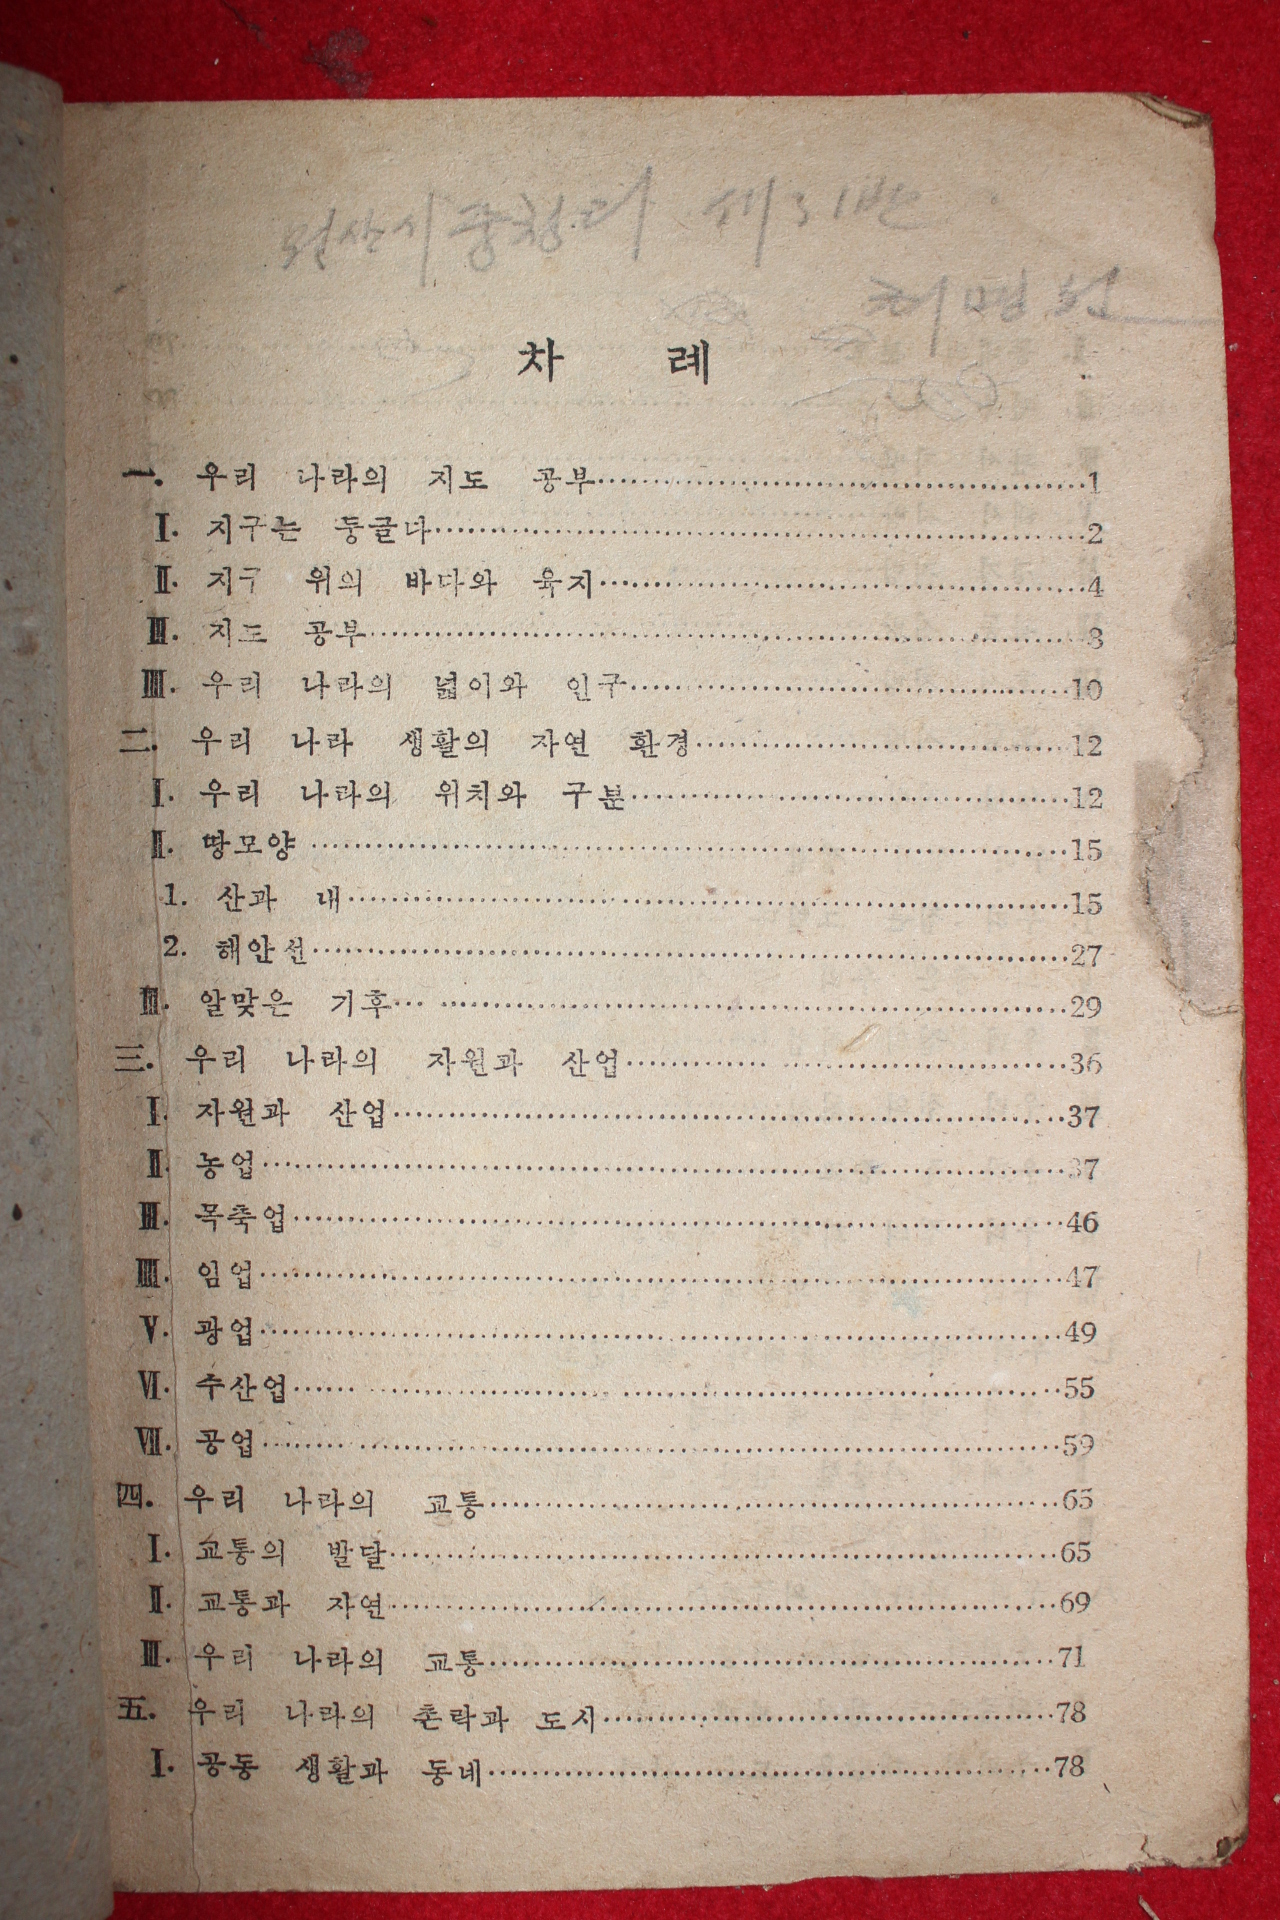 원산시 중청리 제31반
차 례
一. 우리 나라의 지도 공부 1
I. 지구는 둥글다 2
II. 지구 위의 바다와 육지 4
III. 지도 공부 8
IIII. 우리 나라의 넓이와 인구 10
二. 우리 나라 생활의 자연 환경 12
I. 우리 나라의 위치와 구분 12
II. 땅모양 15
1. 산과 내 15
2. 해안선 27
III. 알맞은 기후 29
三. 우리 나라의 자원과 산업 36
I. 자원과 산업 37
II. 농업 37
III. 목축업 46
IIII. 임업 47
V. 광업 49
VI. 수산업 55
VII. 공업 59
四. 우리 나라의 교통 65
I. 교통의 발달 65
II. 교통과 자연 69
III. 우리 나라의 교통 71
五. 우리 나라의 촌락과 도시 78
I. 공동 생활과 동네 78